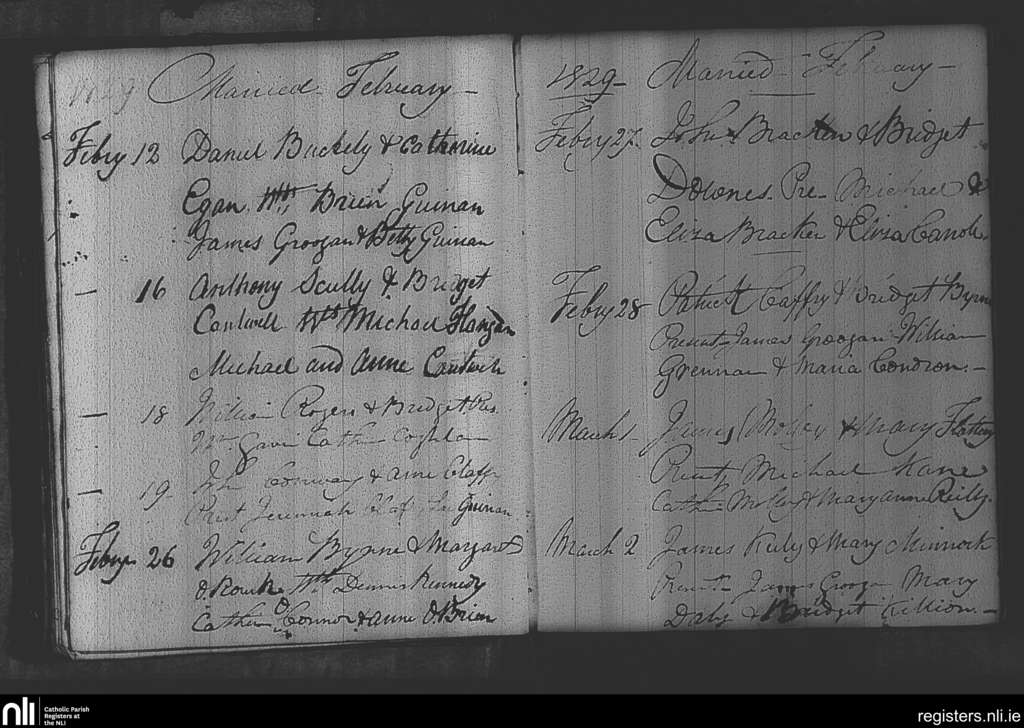 1829 Married - February -
Febry 12 Daniel Buckely & Catherine
Egan Wtss Brien Guinan
James Groogan & Betty Guinan
— 16 Anthony Scully & Bridget
Cantwell Wts Michael Flangan
Michael and Anne Cantwell
— 18 William Rogers & Bridget
Gavin Cathn Coghlan
— 19 John Conway & Anne Claffy
Prest Jeremiah Guinan
Febry 26 William Byrne & Margaret
O Rourke Wts Dennis Kennedy
Cathern O Connor & Anne O Brien
1829 - Married - February -
Febry 27 John Bracken & Bridget
Downes. Pre - Michael &
Eliza Bracken & Eliza
Febry 28 Patrick Caffry & Bridget Byrne
Present - James Groogan William
Grennan & Maria Condron. -
March 1 James Molloy & Mary Flattery
Present Michael Kane
Cathn Molloy & Mary Anne Reilly.
March 2 James & Mary Minnock
Present James Groogan Mary
Daly & Bridget Killion. -
nli
Catholic Parish
Registers at
the NLI
registers.nli.ie